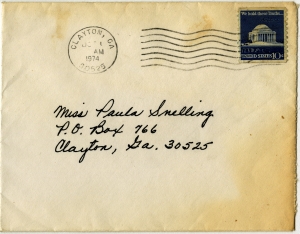 CLAYTON, GA
AM
1974
30525
We hold these Truths...
UNITED STATES 10c
Miss Paula Snelling
P.O. Box 766
Clayton, Ga. 30525